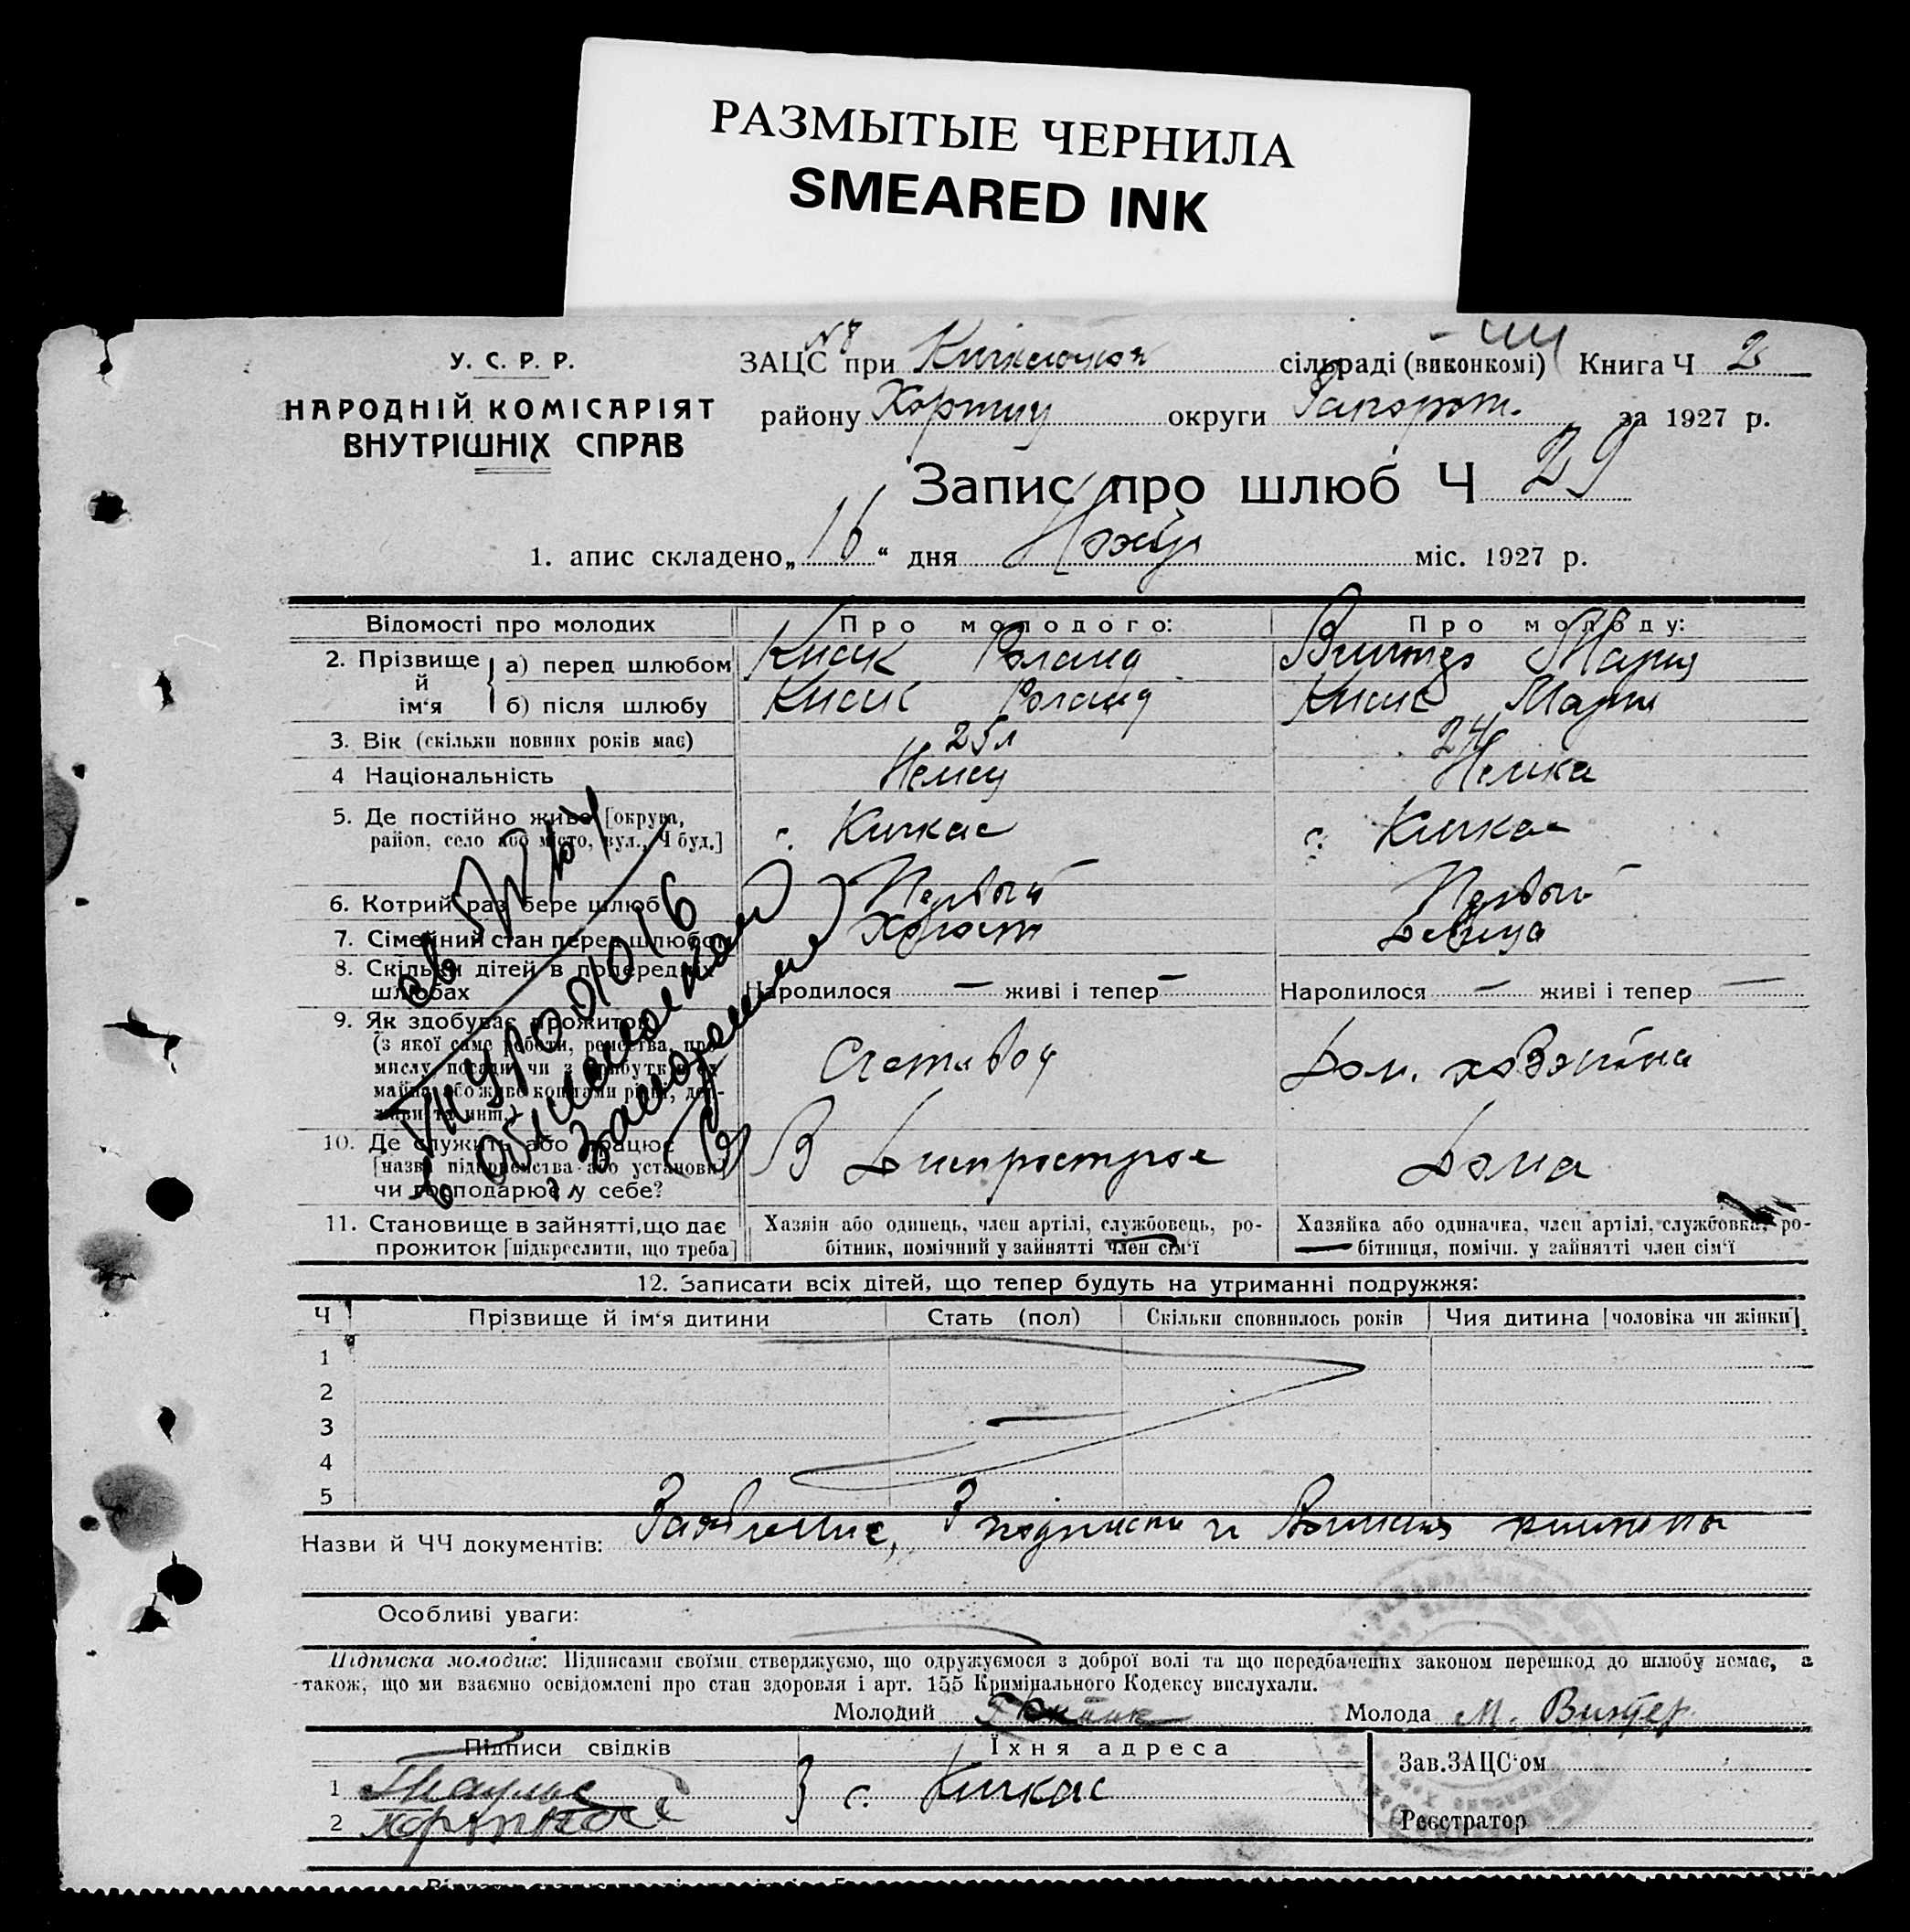 РАЗМЫТЫЕ ЧЕРНИЛА
SMEARED INK
У. С. Р. Р.
НАРОДНІЙ КОМІСАРІЯТ
ВНУТРІШНІХ СПРАВ
ЗАЦС при сільраді (виконкомі) Книга Ч 2
району округи за 1927 р.
Запис про шлюб Ч 29
1. апис складено „16“ дня міс. 1927 р.
Відомості про молодих Про молодого: Про молоду:
2. Прізвище й ім'я
а) перед шлюбом Роланд Мария
б) після шлюбу Роланд Мария
3. Вік (скільки повних років має) 25 л 24
4 Національність Немец Немка
5. Де постійно живе [округа, район, село або місто, вул., Ч буд.] с. Кичкас с. Кичкас
6. Котрий раз бере шлюб Первый Первый
7. Сімейний стан перед шлюбом Холост Девица
8. Скільки дітей в попередніх шлюбах Народилося — живі і тепер — Народилося — живі і тепер —
9. Як здобуває прожиток Счетовод Дом. хозяйка
(з якої саме роботи, ремества, про-
мислу, посади чи з прибутків од
майна, або живе коштами рідні, дер-
жави та инш.)
10. Де служить або працює В Днепрострое Дома
[назва підприємства або установи]
чи господарює у себе?
11. Становище в зайнятті, що дає Хазяїн або одинець, член артілі, службовець, ро- Хазяйка або одиначка, член артілі, службовка, ро-
прожиток [підкреслити, що треба] бітник, помічний у зайнятті член сім'ї бітниця, помічн. у зайнятті член сім'ї
12. Записати всіх дітей, що тепер будуть на утриманні подружжя:
Ч Прізвище й ім'я дитини Стать (пол) Скільки сповнилось років Чия дитина [чоловіка чи жінки]
1
2
3
4
5
Назви й ЧЧ документів: Заявление, 2 подписки и
Особливі уваги:
Підписка молодих: Підписами своїми стверджуємо, що одружуємося з доброї волі та що передбачених законом перешкод до шлюбу немає, а
також, що ми взаємно освідомлені про стан здоровля і арт. 155 Кримінального Кодексу вислухали.
Молодий Молода М.
Підписи свідків Їхня адреса Зав. ЗАЦС'ом
1 с. Кичкас
2 Реєстратор